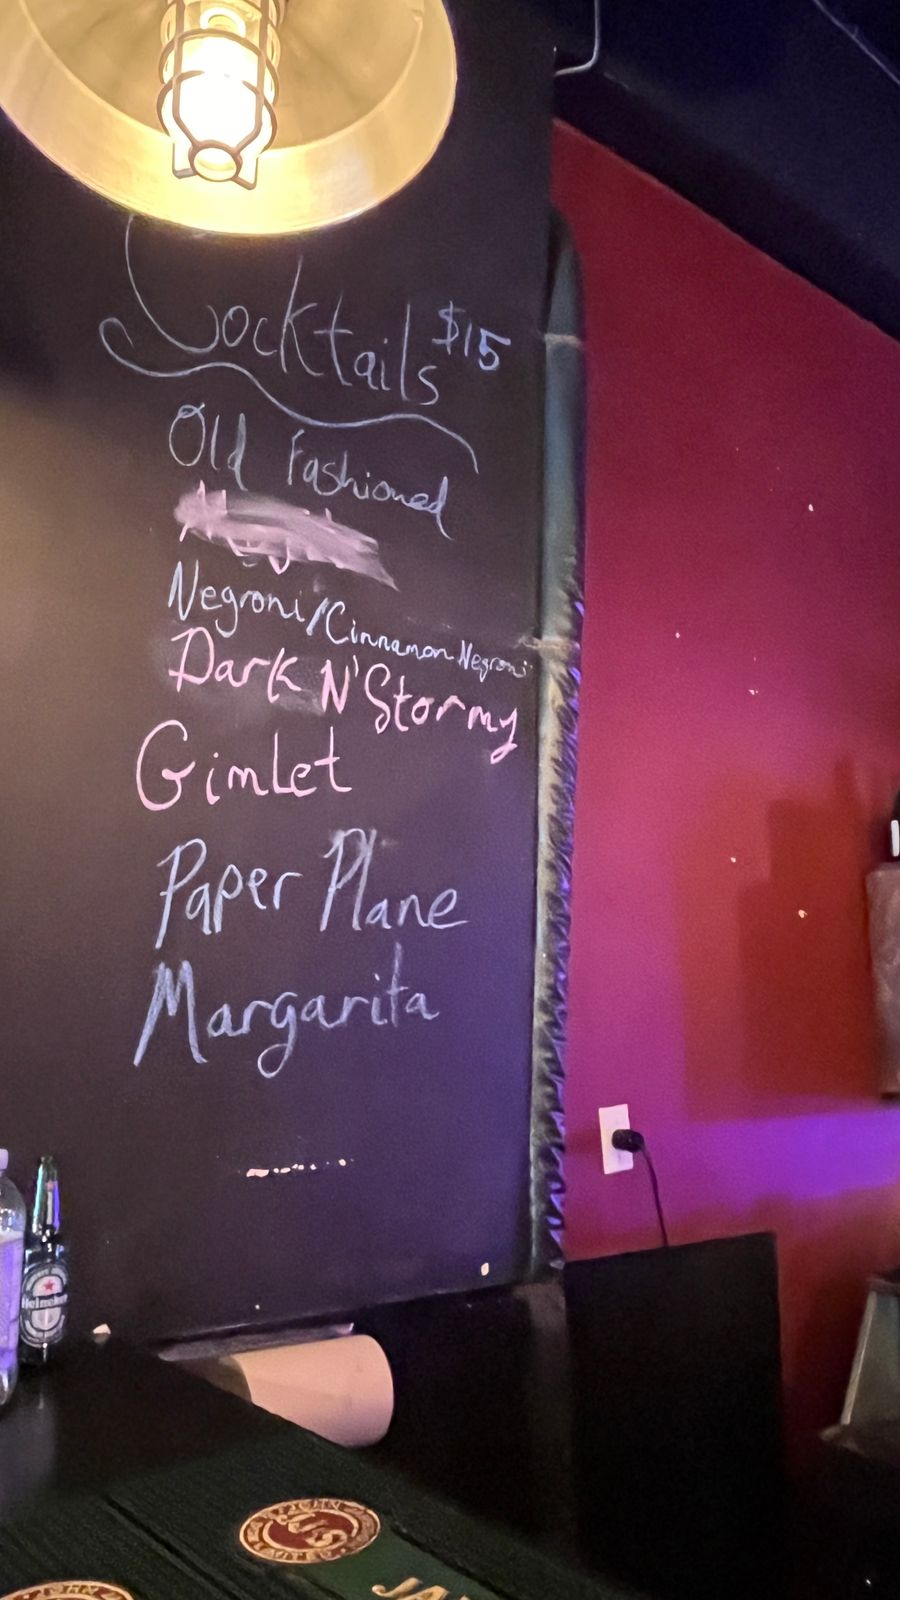 Cocktails $15
Old Fashioned
Negroni/Cinnamon Negroni
Dark N' Stormy
Gimlet
Paper Plane
Margarita
Heineken
JJ&S